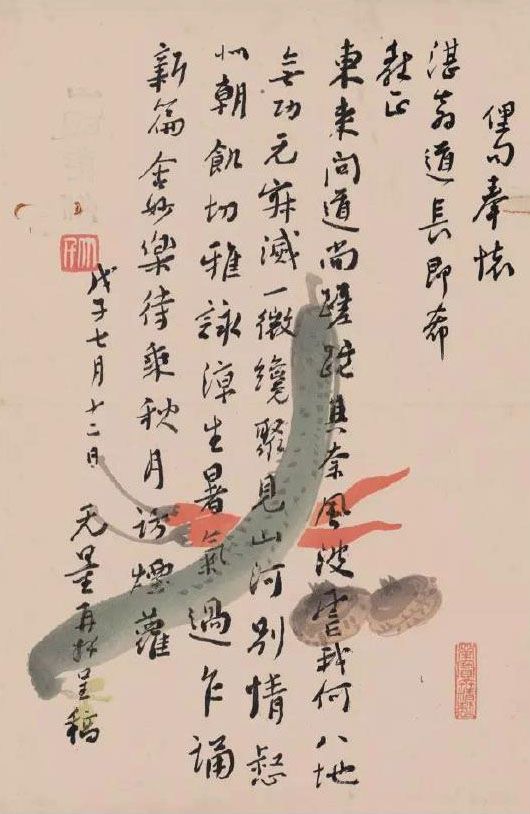 俚句奉懷
湛翁道長即希
教正
東來問道尚蹉跎其奈風波我何八地
無功元寂滅一微纔聚見山河別情惄
似朝飢切雅詠涼生暑氣過乍誦
新篇妙樂待乘秋月訪煙蘿
戊子七月十二日 无量再拜呈稿